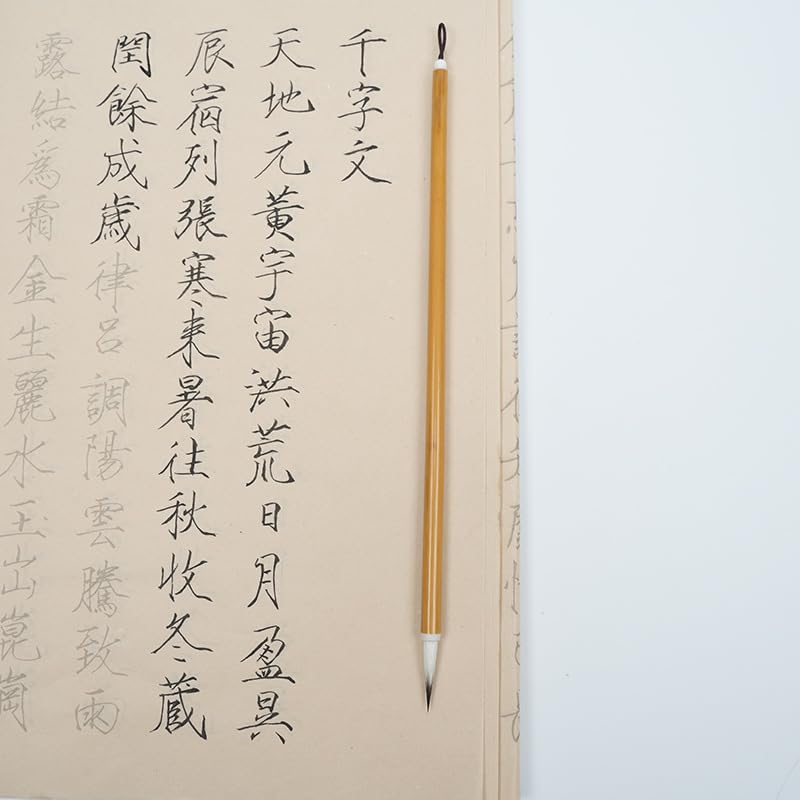 千字文
天地元黃宇宙洪荒日月盈昃
辰宿列張寒来暑往秋收冬藏
閏餘成歲律呂調陽雲騰致雨
露結爲霜金生麗水玉出崑崗